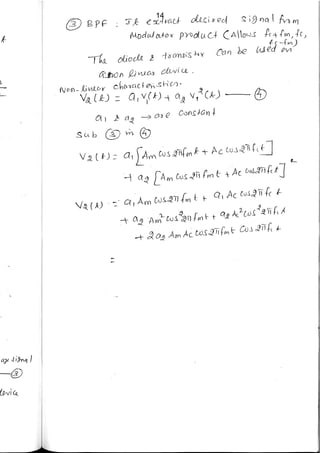 14
③ BPF : To extract desired signal from
Modulator product (Allows fc+fm, fc,
fc-fm)
The diode & transistor can be used as
a non linear device.
Non-linear characteristics.
V2(t) = a1 V1(t) + a2 V1²(t) — ④
a1 & a2 → are constant
Sub ③ in ④
V2(t) = a1 [Am Cos2πfmt + Ac cos2πfct]
+ a2 [Am Cos2πfmt + Ac Cos2πfct]²
V2(t) = a1 Am Cos2πfmt + a1 Ac Cos2πfct
+ a2 Am² Cos²2πfmt + a2 Ac² cos²2πfct
+ 2a2 Am Ac Cos2πfmt Cos2πfct
=
signal
③
device